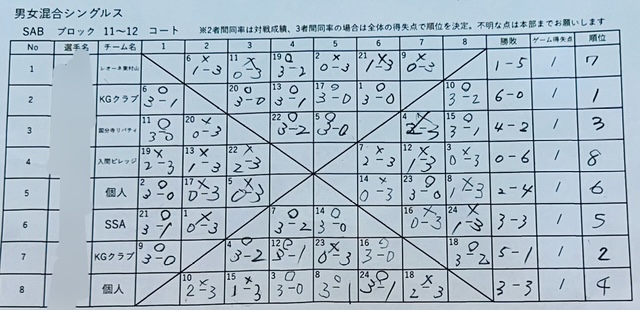 男女混合シングルス
SAB ブロック 11～12 コート ※2者間同率は対戦成績、3者間同率の場合は全体の得失点で順位を決定。不明な点は本部までお願いします
No 選手名 チーム名 1 2 3 4 5 6 7 8 勝敗 ゲーム得失点 順位
1 レオーネ東村山 6 × 1-3 11 × 0-3 19 ○ 3-2 2 × 0-3 21 × 1-3 9 × 0-3 1-5 / 7
2 KGクラブ 6 ○ 3-1 20 ○ 3-0 13 ○ 3-1 17 ○ 3-0 1 ○ 3-0 10 ○ 3-2 6-0 / 1
3 国分寺リバティ 11 ○ 3-0 20 × 0-3 22 ○ 3-2 5 ○ 3-0 4 × 2-3 15 ○ 3-1 4-2 / 3
4 入間ビレッジ 19 × 2-3 13 × 1-3 22 × 2-3 7 × 2-3 12 × 1-3 3 × 0-3 0-6 / 8
5 個人 2 ○ 3-0 17 × 0-3 5 × 0-3 14 × 0-3 23 ○ 3-0 8 × 1-3 2-4 / 6
6 SSA 21 ○ 3-1 1 × 0-3 7 ○ 3-2 14 ○ 3-0 16 × 0-3 24 × 1-3 3-3 / 5
7 KGクラブ 9 ○ 3-0 4 ○ 3-2 12 ○ 3-1 23 × 0-3 16 ○ 3-0 18 ○ 3-2 5-1 / 2
8 個人 10 × 2-3 15 × 1-3 3 ○ 3-0 8 ○ 3-1 24 ○ 3-1 18 × 2-3 3-3 / 4